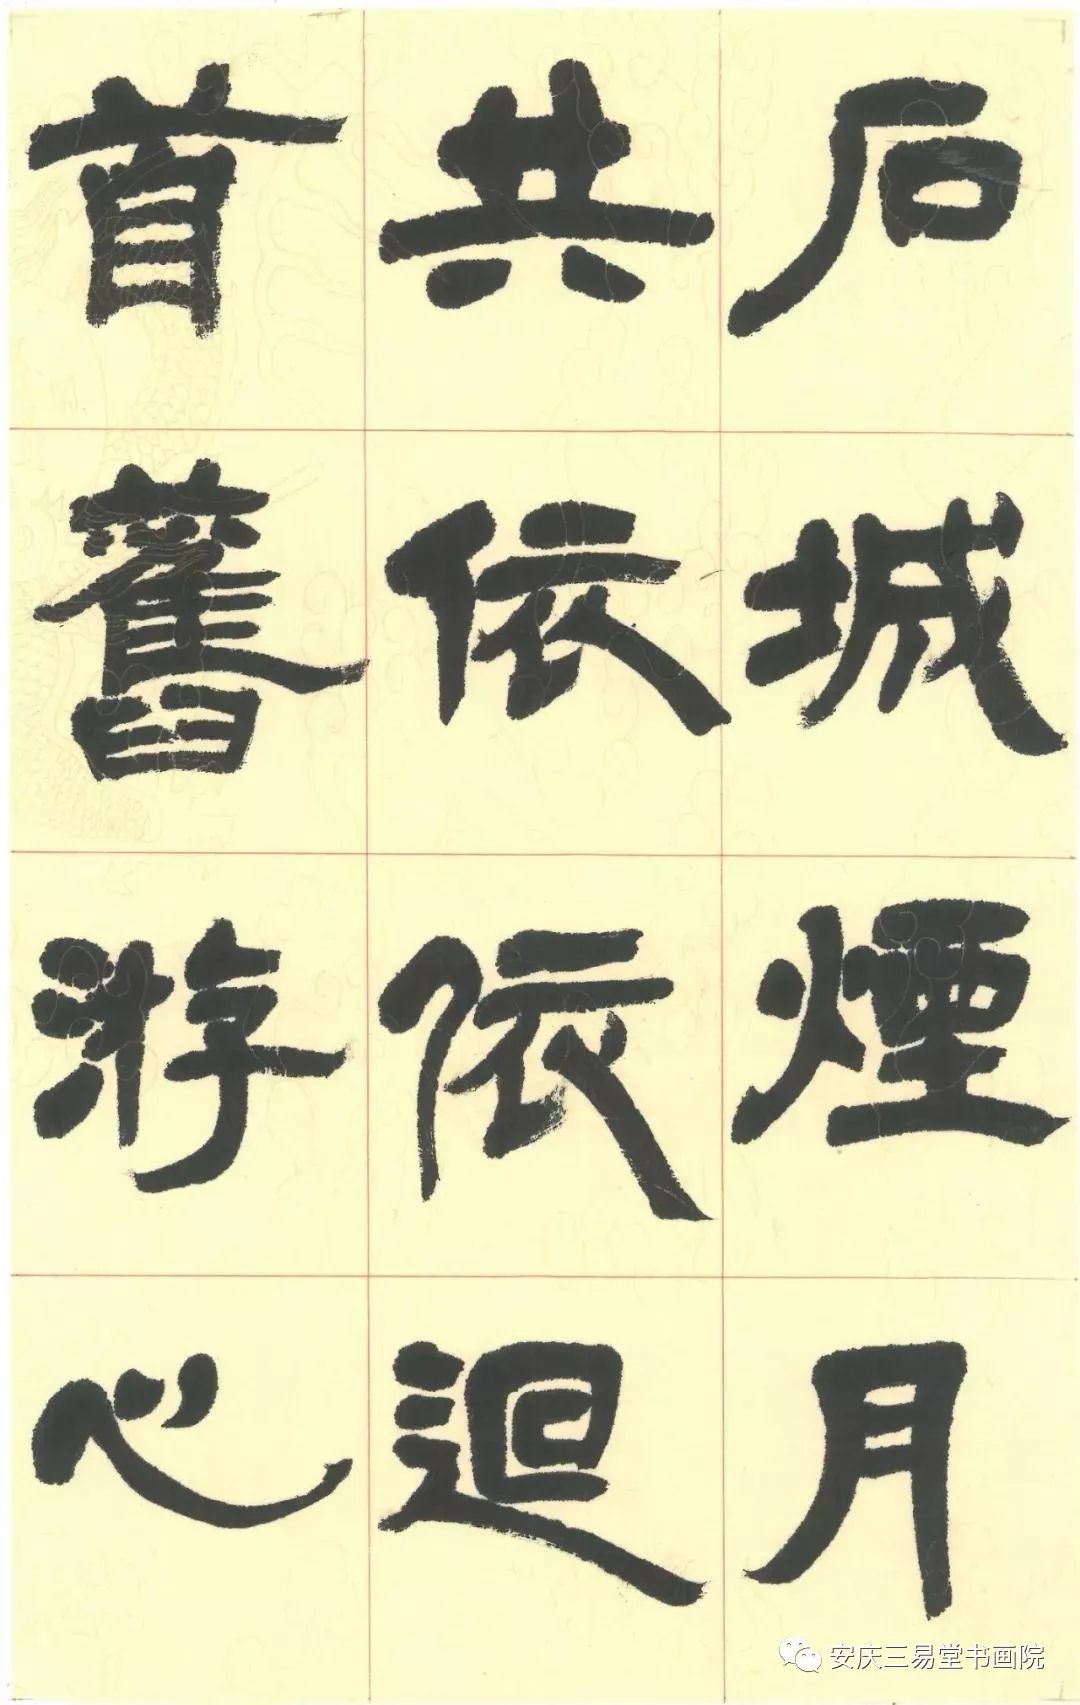 石城煙月
共依依迴
首舊游心
安庆三易堂书画院